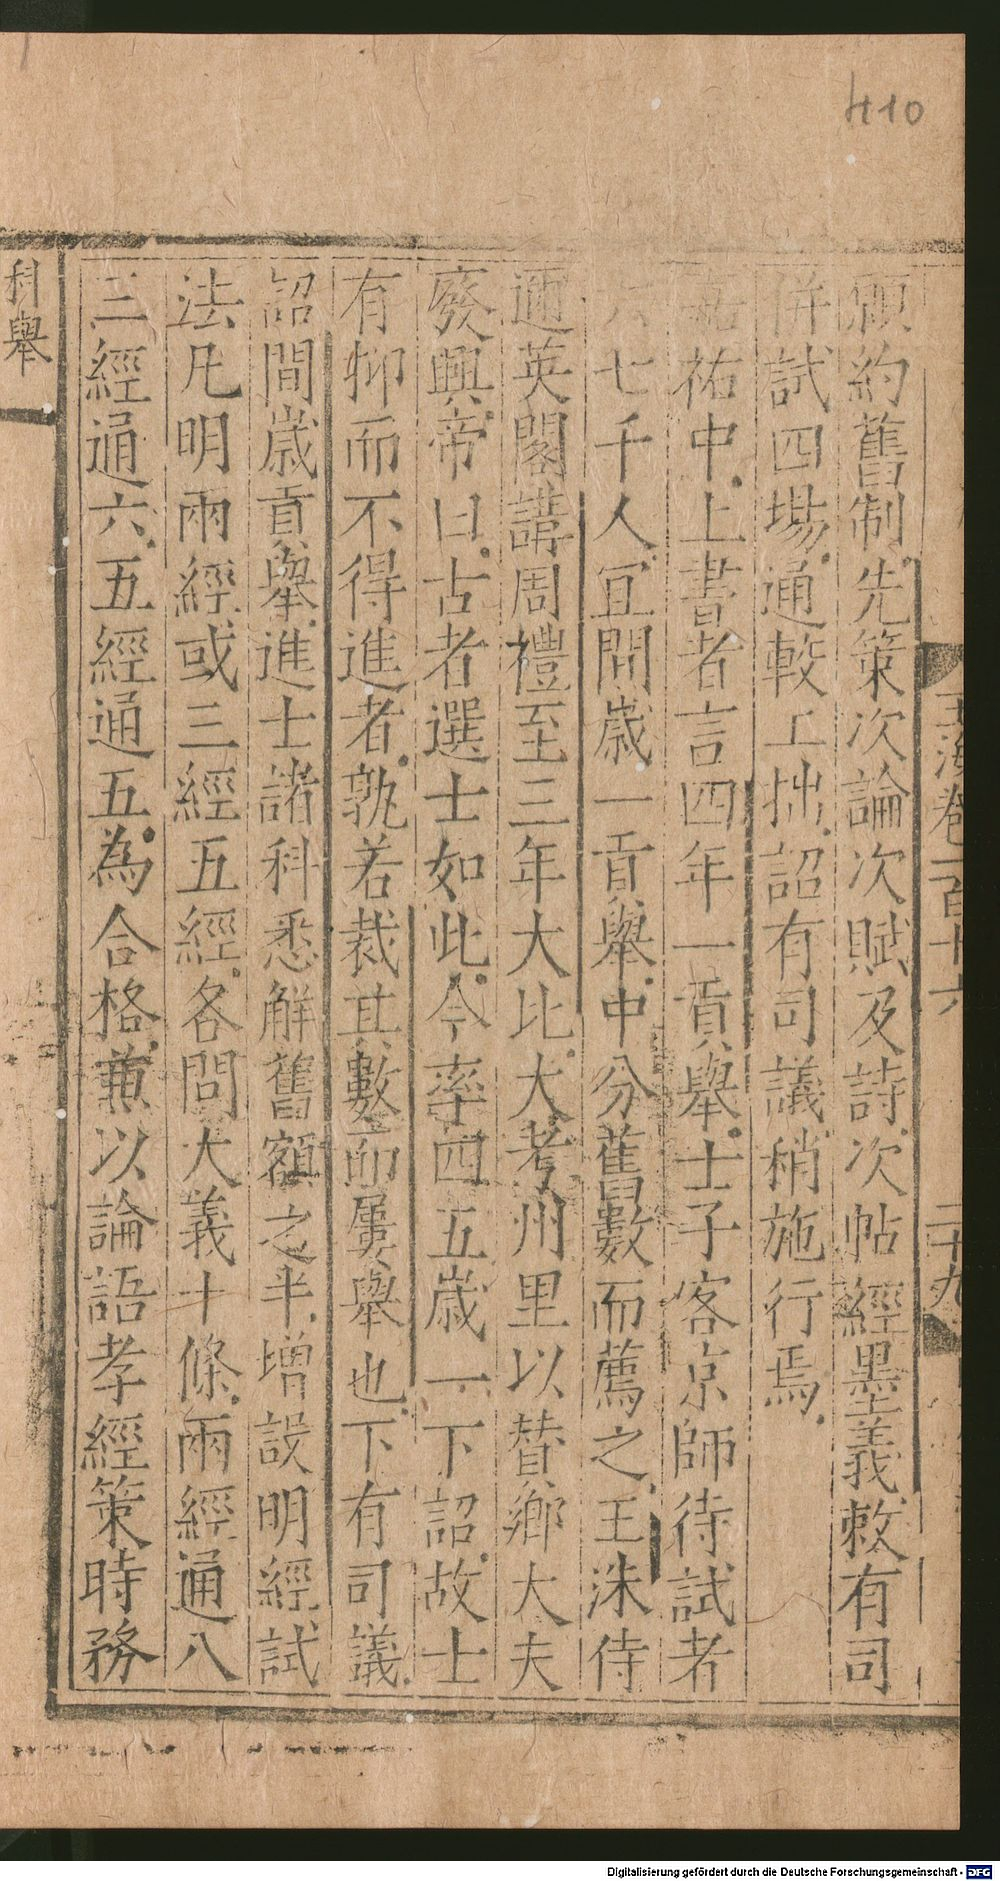 410
玉海卷一百十六 二十九
願約舊制先策次論次賦及詩次帖經墨義敕有司
併試四場通較工拙詔有司議稍施行焉
嘉祐中上書者言四年一貢舉士子客京師待試者
六七千人冝間歲一貢舉中分舊數而薦之王洙侍
邇英閣講周禮至三年大比大考州里以賛鄉大夫
廢興帝曰古者選士如此今率四五歲一下詔故士
有抑而不得進者孰若裁其數而屢舉也下有司議
詔間歲貢舉進士諸科悉解舊額之半增設明經試
法凡明兩經或三經五經各問大義十條兩經通八
三經通六五經通五為合格兼以論語孝經策時務
科舉
Digitalisierung gefördert durch die Deutsche Forschungsgemeinschaft - DFG